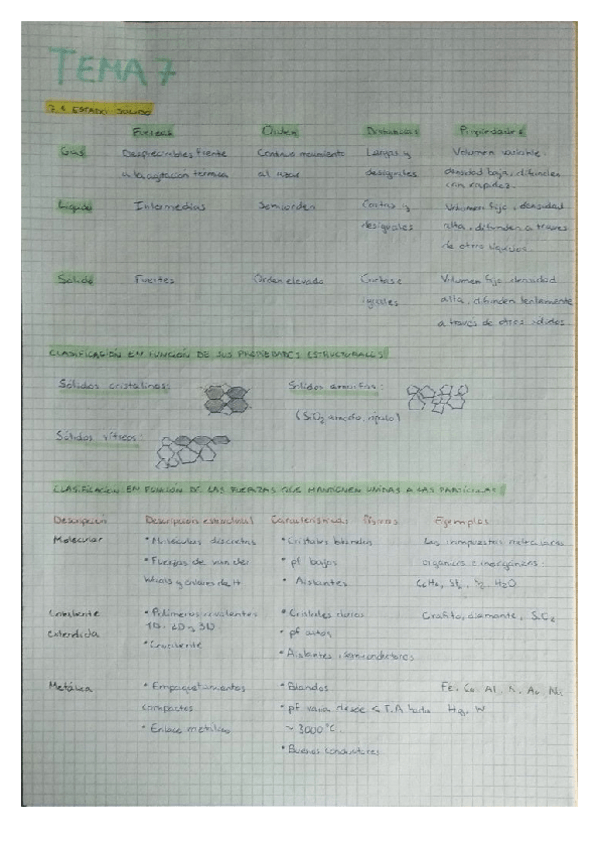 TEMA 7
ESTADO SOLIDO
Fuerzas Orden Distancias Propiedades
Gas Despreciables frente Continuo movimiento Largas y Volumen variable,
a la agitación térmica al azar desiguales densidad baja, difunden
con rapidez.
Líquido Intermedias Semiorden Cortas y Volumen fijo, densidad
desiguales alta, difunden a traves
de otro líquidos
Sólido Fuertes Orden elevado Cortas e Volumen fijo densidad
iguales alta, difunden lentamente
a través de otros sólidos
CLASIFICACIÓN EN FUNCIÓN DE SUS PROPIEDADES ESTRUCTURALES
Sólidos cristalinos: Sólidos amorfos:
(SiO2
Sólidos vítreos:
CLASIFICACIÓN EN FUNCIÓN DE LAS FUERZAS QUE MANTIENEN UNIDAS A LAS PARTÍCULAS
Descripción Descripción estructural Características físicas Ejemplos
Molecular • Moléculas discretas • Cristales blandos Los compuestos moleculares
• Fuerzas de van der • pf bajos orgánicos e inorgánicos:
Waals y enlaces de H • Aislantes C6H6, I2, H2O
Covalente • Polímeros covalentes • Cristales duros Grafito, diamante,
Extendida 1D, 2D y 3D • pf altos
• Covalente • Aislantes, semiconductores
Metálica • Empaquetamientos • Blandos Fe, Cu, Al,
compactos • pf varia desde < T.A hasta Hg, W
• Enlace metálico ~ 3000°C.
• Buenos conductores